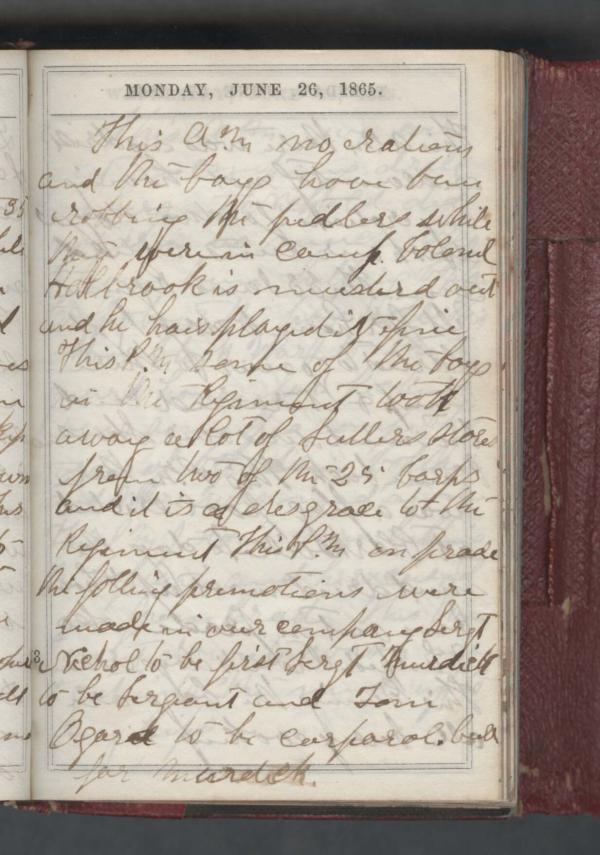 MONDAY, JUNE 26, 1865.
This A.M no rations
and the boys have been
robbing the pedlers while
they were in camp. Colonel
Holbrook is musterd out
and he has played it fine
This P.M some of the boys
in the Regiment took
away a lot of Sutlers stores
from two of the 25 Corps
and it is a desgrace to the
Regiment This P.M on prade
the folling premotions were
made in our company Sergt
Nichol to be first Sergt Burdick
to be Sergant and Tom
to be corparal.
for Murdick.